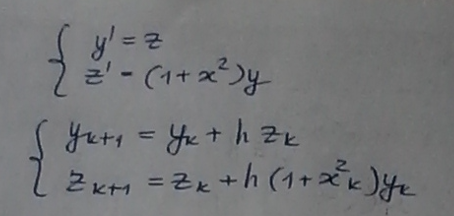 y' = z
z' - (1+x²)y
yₖ₊₁ = yₖ + h zₖ
zₖ₊₁ = zₖ + h (1+x²ₖ)yₖ